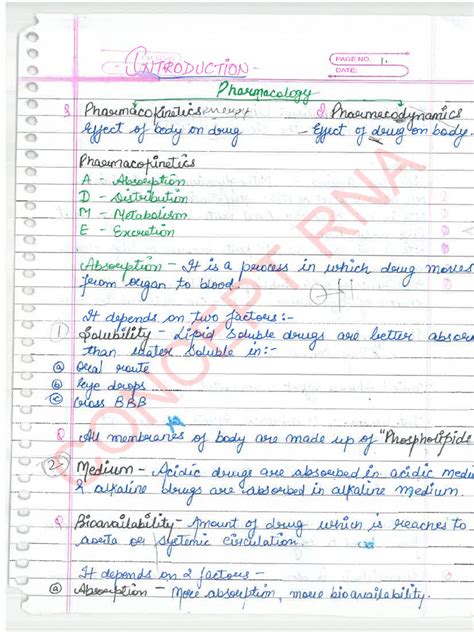 INTRODUCTION -
PAGE NO. 1.
DATE:
Pharmacology
Q Pharmacokinetics Q Pharmacodynamics
Effect of body on drug Effect of drug on body.
Pharmacokinetics
A - Absorption
D - Distribution
M - Metabolism
E - Excretion
Absorption - It is a process in which drug moves
from organ to blood.
It depends on two factors :-
1) Solubility - Lipid soluble drugs are better absor
than water soluble in :-
a Oral route
b Eye drops
c Cross BBB
Q All membranes of body are made up of "Phospholipids
2- Medium - Acidic drugs are absorbed in acidic medi
& alkaline drugs are absorbed in alkaline medium.
Q Bioavailability - Amount of drug which is reaches to
aorta or systemic circulation.
It depends on 2 factors -
a Absorption - More absorption, more bioavailability.
CONCEPT RNA